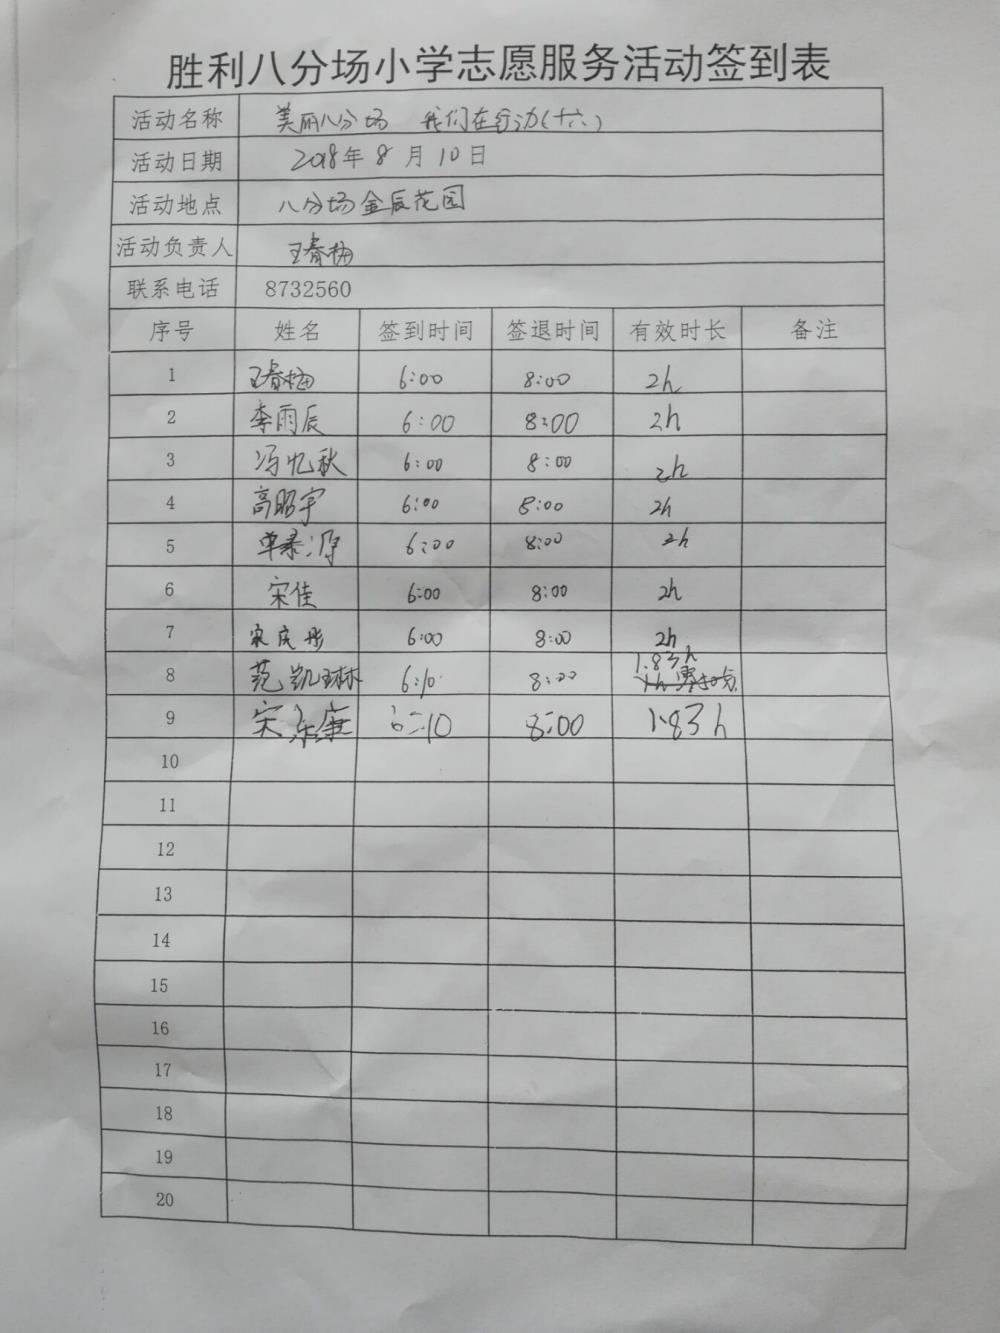 胜利八分场小学志愿服务活动签到表
活动名称 美丽八分场 我们在行动(十六)
活动日期 2018年8月10日
活动地点 八分场金辰花园
活动负责人 王春梅
联系电话 8732560
序号 姓名 签到时间 签退时间 有效时长 备注
1 王春梅 6:00 8:00 2h
2 李雨辰 6:00 8:00 2h
3 冯忆秋 6:00 8:00 2h
4 高昭宇 6:00 8:00 2h
5 6:00 8:00 2h
6 宋佳 6:00 8:00 2h
7 宋庆彤 6:00 8:00 2h
8 范凯琳 6:10 8:00 1.83h
9 宋乐康 6:10 8:00 1.83h
10
11
12
13
14
15
16
17
18
19
20